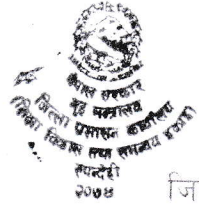 नेपाल सरकार
गृह मन्त्रालय
जिल्ला प्रशासन कार्यालय
तथा समन्वय
रुपन्देही
२०७४
जि